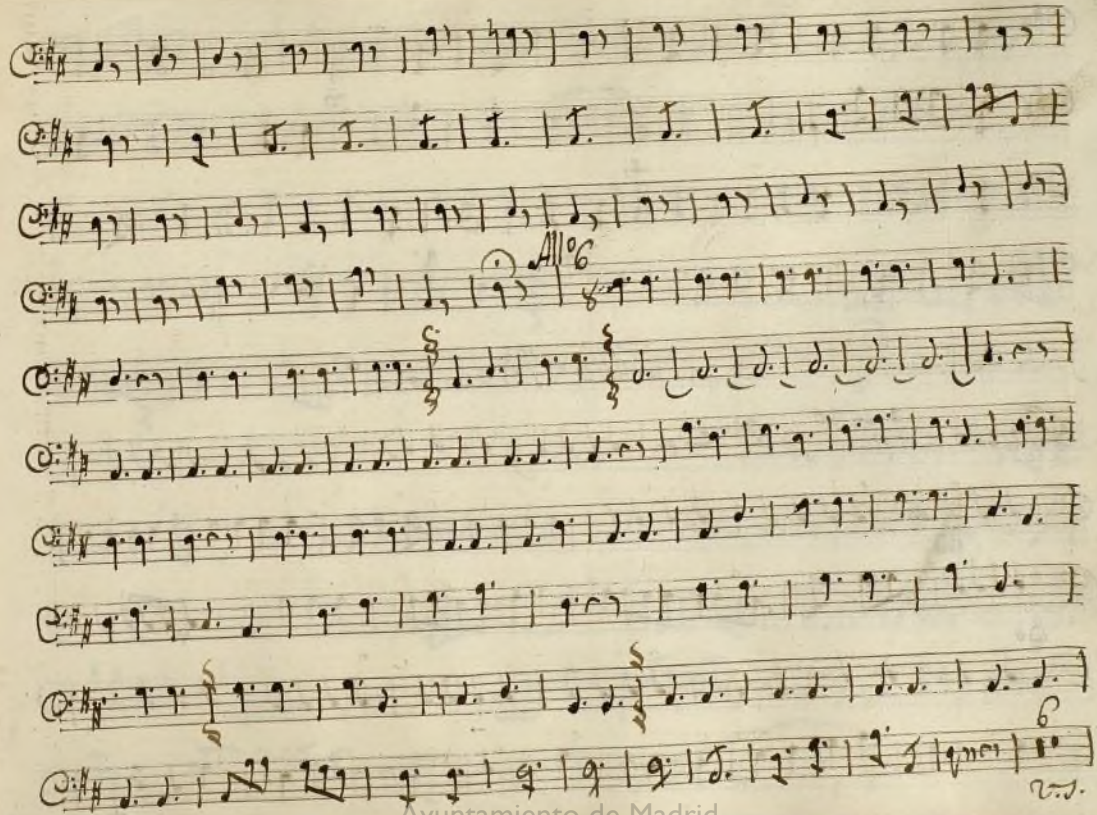 All° 6
8
6
V.S.
Ayuntamiento de Madrid